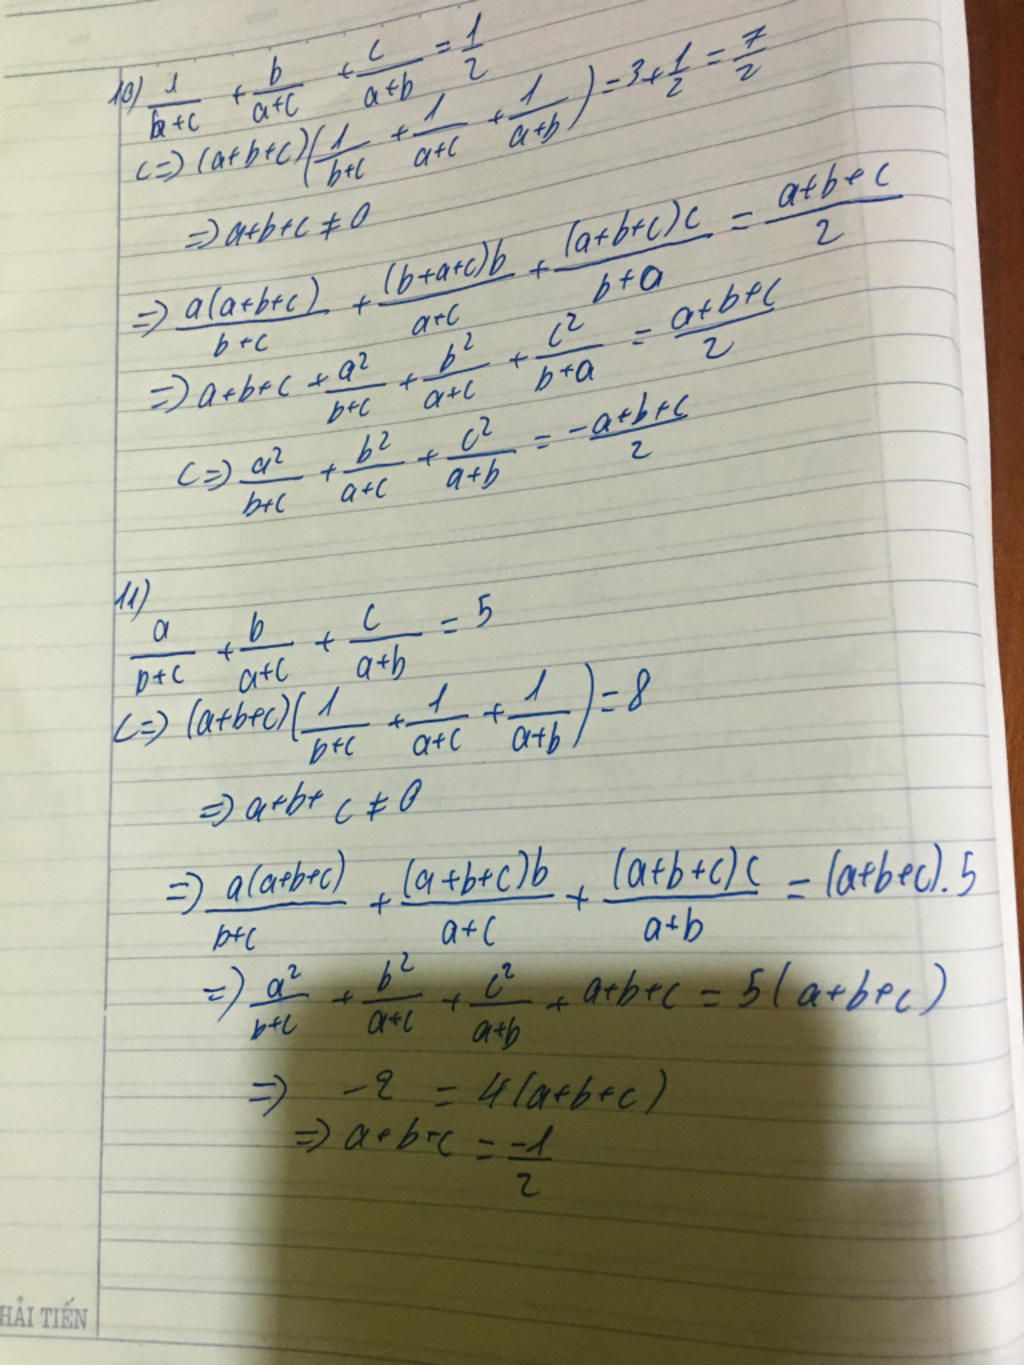 10) 1/(b+c) + b/(a+c) + c/(a+b) = 1/2
<=> (a+b+c)(1/(b+c) + 1/(a+c) + 1/(a+b)) = 3+1/2 = 7/2
=> a+b+c ≠ 0
=> a(a+b+c)/(b+c) + (b+a+c)b/(a+c) + (a+b+c)c/(b+a) = (a+b+c)/2
=> a+b+c + a²/(b+c) + b²/(a+c) + c²/(b+a) = (a+b+c)/2
<=> a²/(b+c) + b²/(a+c) + c²/(a+b) = -(a+b+c)/2
11)
a/(b+c) + b/(a+c) + c/(a+b) = 5
<=> (a+b+c)(1/(b+c) + 1/(a+c) + 1/(a+b)) = 8
=> a+b+c ≠ 0
=> a(a+b+c)/(b+c) + (a+b+c)b/(a+c) + (a+b+c)c/(a+b) = (a+b+c).5
=> a²/(b+c) + b²/(a+c) + c²/(a+b) + a+b+c = 5(a+b+c)
=> -2 = 4(a+b+c)
=> a+b+c = -1/2
HẢI TIẾN